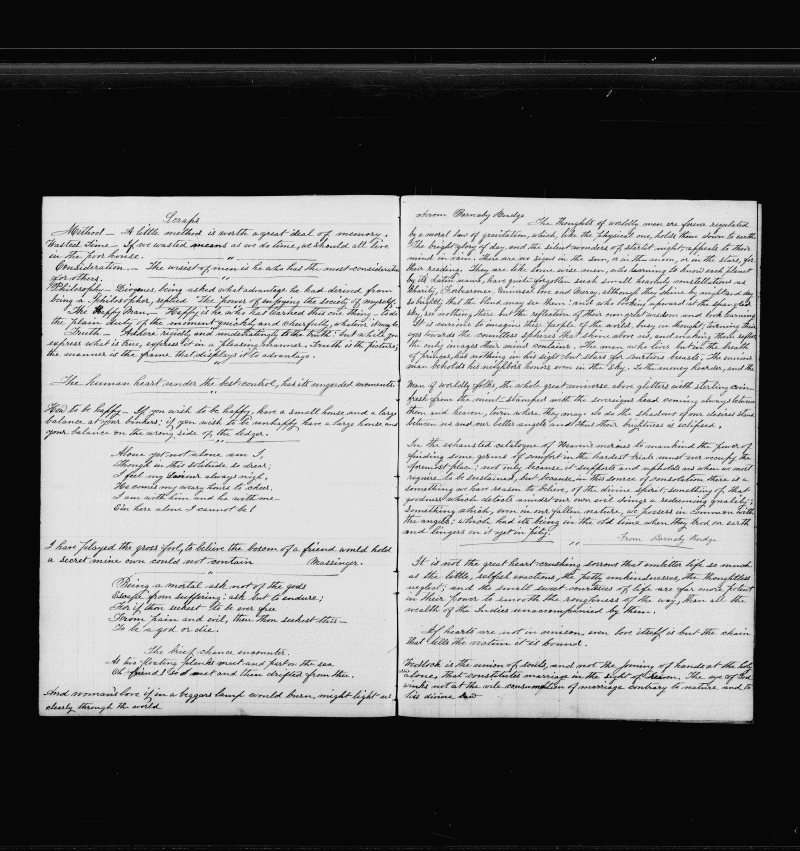 Scraps
Method — A little method is worth a great deal of memory.
Wasted Time — If we wasted means as we do time, we should all live
in the poor house.
Consideration — The wisest of men is he who has the most consideration
for others.
Philosophy — Diogenes being asked what advantage he had derived from
being a Philosopher, replied "The power of enjoying the society of myself."
The Happy Man — Happy is he who has learned this one thing — to do
the plain duty of the moment quickly and cheerfully, whatever it may be
Truth — Adhere rigidly and undeviatingly to the truth: but while you
express what is true, express it in a pleasing manner. Truth is the picture;
the manner is the frame that displays it to advantage.
The human heart under the best control, has its unguarded moments.
How to be happy — If you wish to be happy, have a small house and a large
balance at your bankers; if you wish to be unhappy have a large house and
your balance on the wrong side of the ledger.
Alone yet not alone am I,
Though in this solitude so drear;
I feel my Saviour always nigh,
He comes my weary hours to cheer.
I am with him and he with me
E'en here alone I cannot be!
I have played the gross fool, to believe the bosom of a friend would hold
a secret mine own could not contain Massinger.
Being a mortal ask not of the gods
Escape from suffering; ask but to endure;
For if thou seekest to be ever free
From pain and evil, then thou seekest this —
To be a god or die.
The brief chance encounter.
As two floating planks meet and part on the sea
Oh friend! so I met and then drifted from thee.
And woman's love if in a beggars lamp would burn, might light us
clearly through the world
From Barnaby Rudge
The thoughts of worldly men are forever regulated
by a moral law of gravitation, which, like the physical one, holds them down to earth
The bright glory of day, and the silent wonders of starlit night, appeals to their
mind in vain. There are no signs in the sun, or in the moon, or in the stars, for
their reading. They are like some wise men, who learning to know each planet
by its Latin name, have quite forgotten such small heavenly constellations as
Charity, Forbearance, Universal Love and Mercy, although they shine by night and day
so brightly that the blind may see them: and who looking upward at the spangled
sky, see nothing there but the reflection of their own great wisdom and book learning
It is curious to imagine these people of the world, busy in thought, turning their
eyes towards the countless spheres that shine above us, and making them reflect
the only images their mind contains. The man who lives but in the breath
of princes, has nothing in his sight but stars for courtiers breasts. The envious
man beholds his neighbors honors even in the sky. To the money hoarder, and the
man of worldly folks, the whole great universe above glitters with sterling coin
fresh from the mint stamped with the sovereigns head coming always between
them and heaven, turn where they may. So do the shadows of our desires stand
between us and our better angels and thus their brightness is eclipsed.
In the exhausted catalogue of Heaven's mercies to mankind the power of
finding some germs of comfort in the hardest trials must ever occupy the
foremost place; not only because it supports and upholds us when we most
require to be sustained, but because in this source of consolation there is a
something we have reason to believe, of the divine spirit; something of that
goodness which detects amidst our own evil doings a redeeming quality;
something which, even in our fallen nature, we possess in common with
the angels; which had its being in the old time when they trod on earth
and lingers on it yet in pity.
From Barnaby Rudge
It is not the great heart-crushing sorrows that embitter life so much
as the little, selfish exactions, the petty unkindnesses, the thoughtless
neglect; and the small sweet courtesies of life are far more potent
in their power to smooth the roughness of the way, than all the
wealth of the Indies unaccompanied by them.
If hearts are not in unison, even love itself is but the chain
that tells the victim it is bound.
Wedlock is the union of souls, and not the joining of hands at the holy
alone, that constitutes marriage in the sight of heaven. The eye of God
winks not at the vile consumption of marriage contrary to nature and to
his divine law